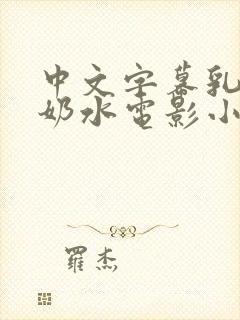 中文字幕乳
奶水电影小
羅杰